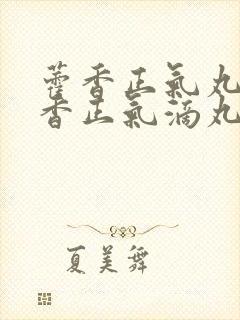 藿香正氣丸
香正氣滴丸
夏美舞